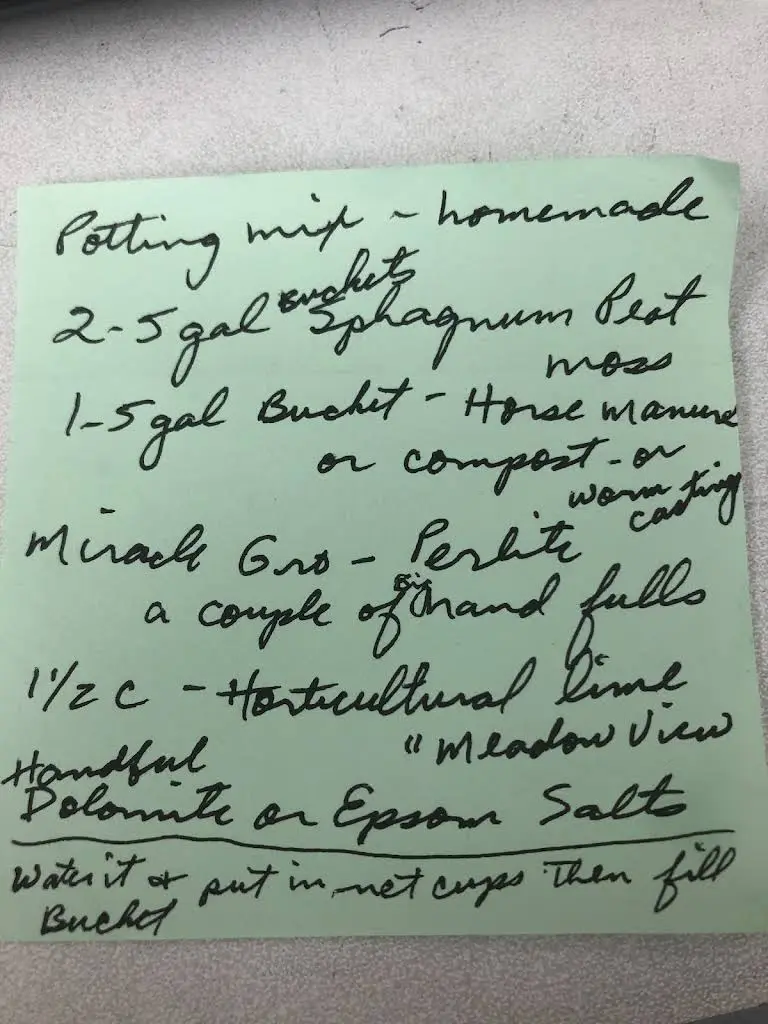 Potting mix ~ homemade
2-5 gal Buckets Sphagnum Peat
moss
1-5 gal Bucket - Horse manure
or compost - or
worm casting
Miracle Gro - Perlite
a couple of Big hand fulls
1 1/2 C - Horticultural lime
"Meadow View
Handful
Dolomite or Epsom Salts
Water it & put in net cups then fill
Bucket